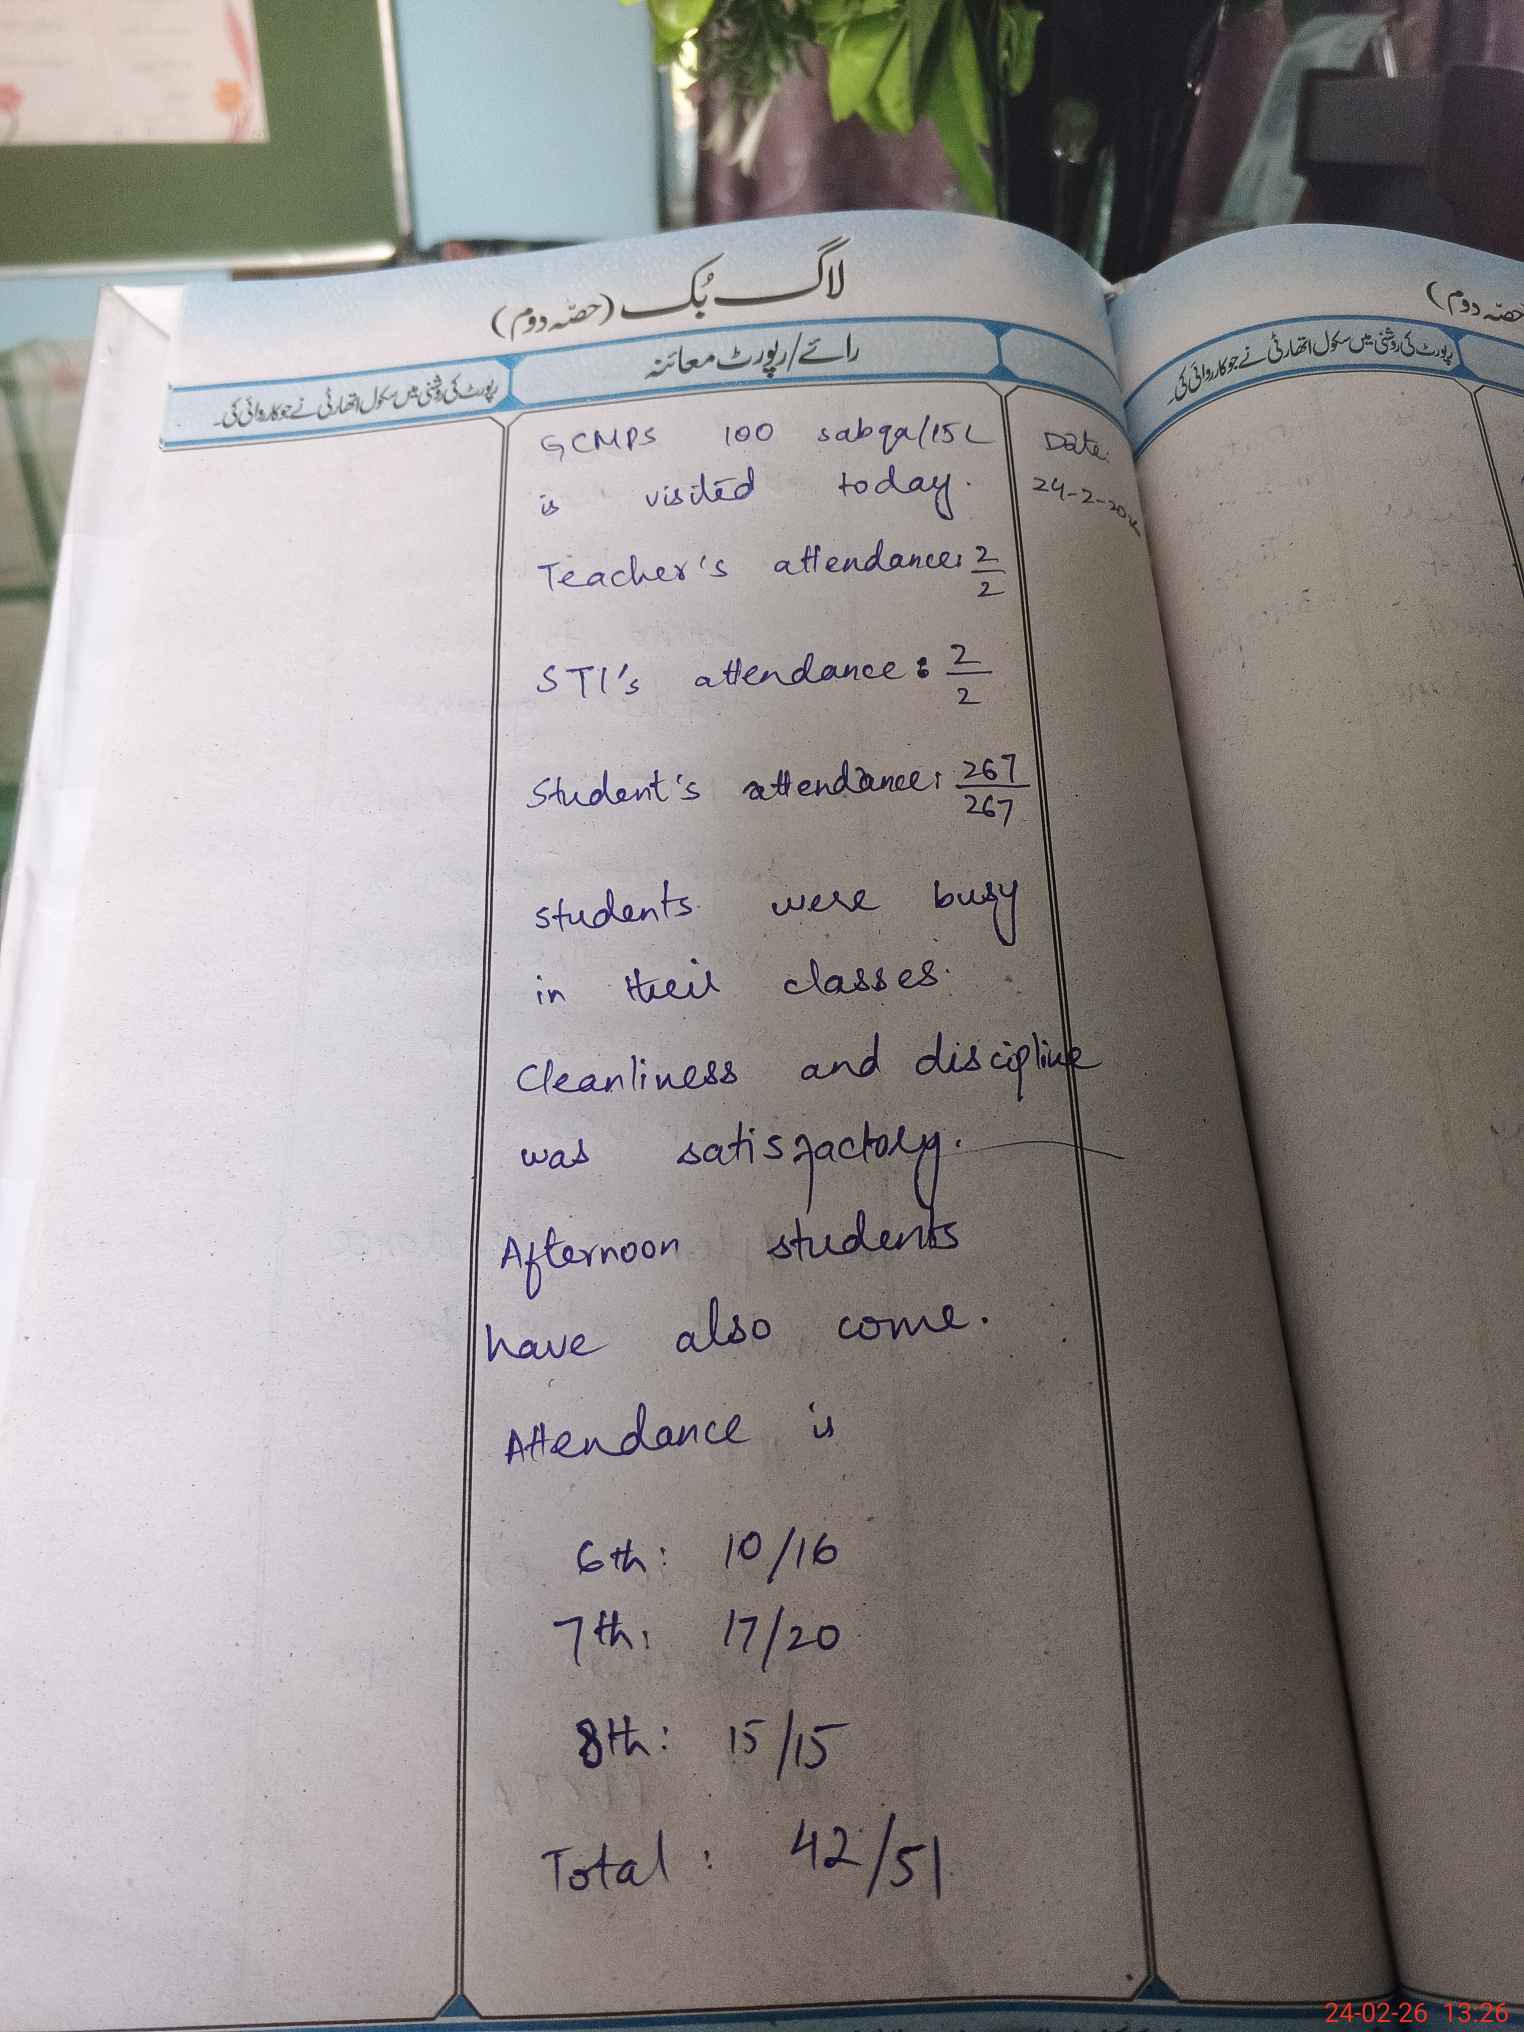 لاگ بُک (حصّہ دوم)
رائے/رپورٹ معائنہ
رپورٹ کی روشنی میں سکول اتھارٹی نے جو کاروائی کی۔
GCMPS 100 sabqa/15L
is visited today.
Date:
24-2-20
Teacher's attendance: 2/2
STI's attendance: 2/2
Student's attendance: 267/267
students were busy
in their classes.
Cleanliness and discipline
was satisfactory.
Afternoon students
have also come.
Attendance is
6th: 10/16
7th: 17/20
8th: 15/15
Total: 42/51
حصّہ دوم)
رپورٹ کی روشنی میں سکول اتھارٹی نے جو کاروائی کی۔
24-02-26 13:26